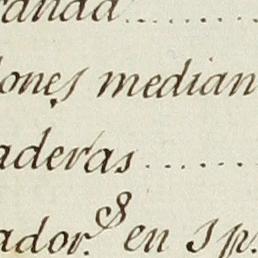 randa........
lones median
aderas.......
ador.s en Ip.